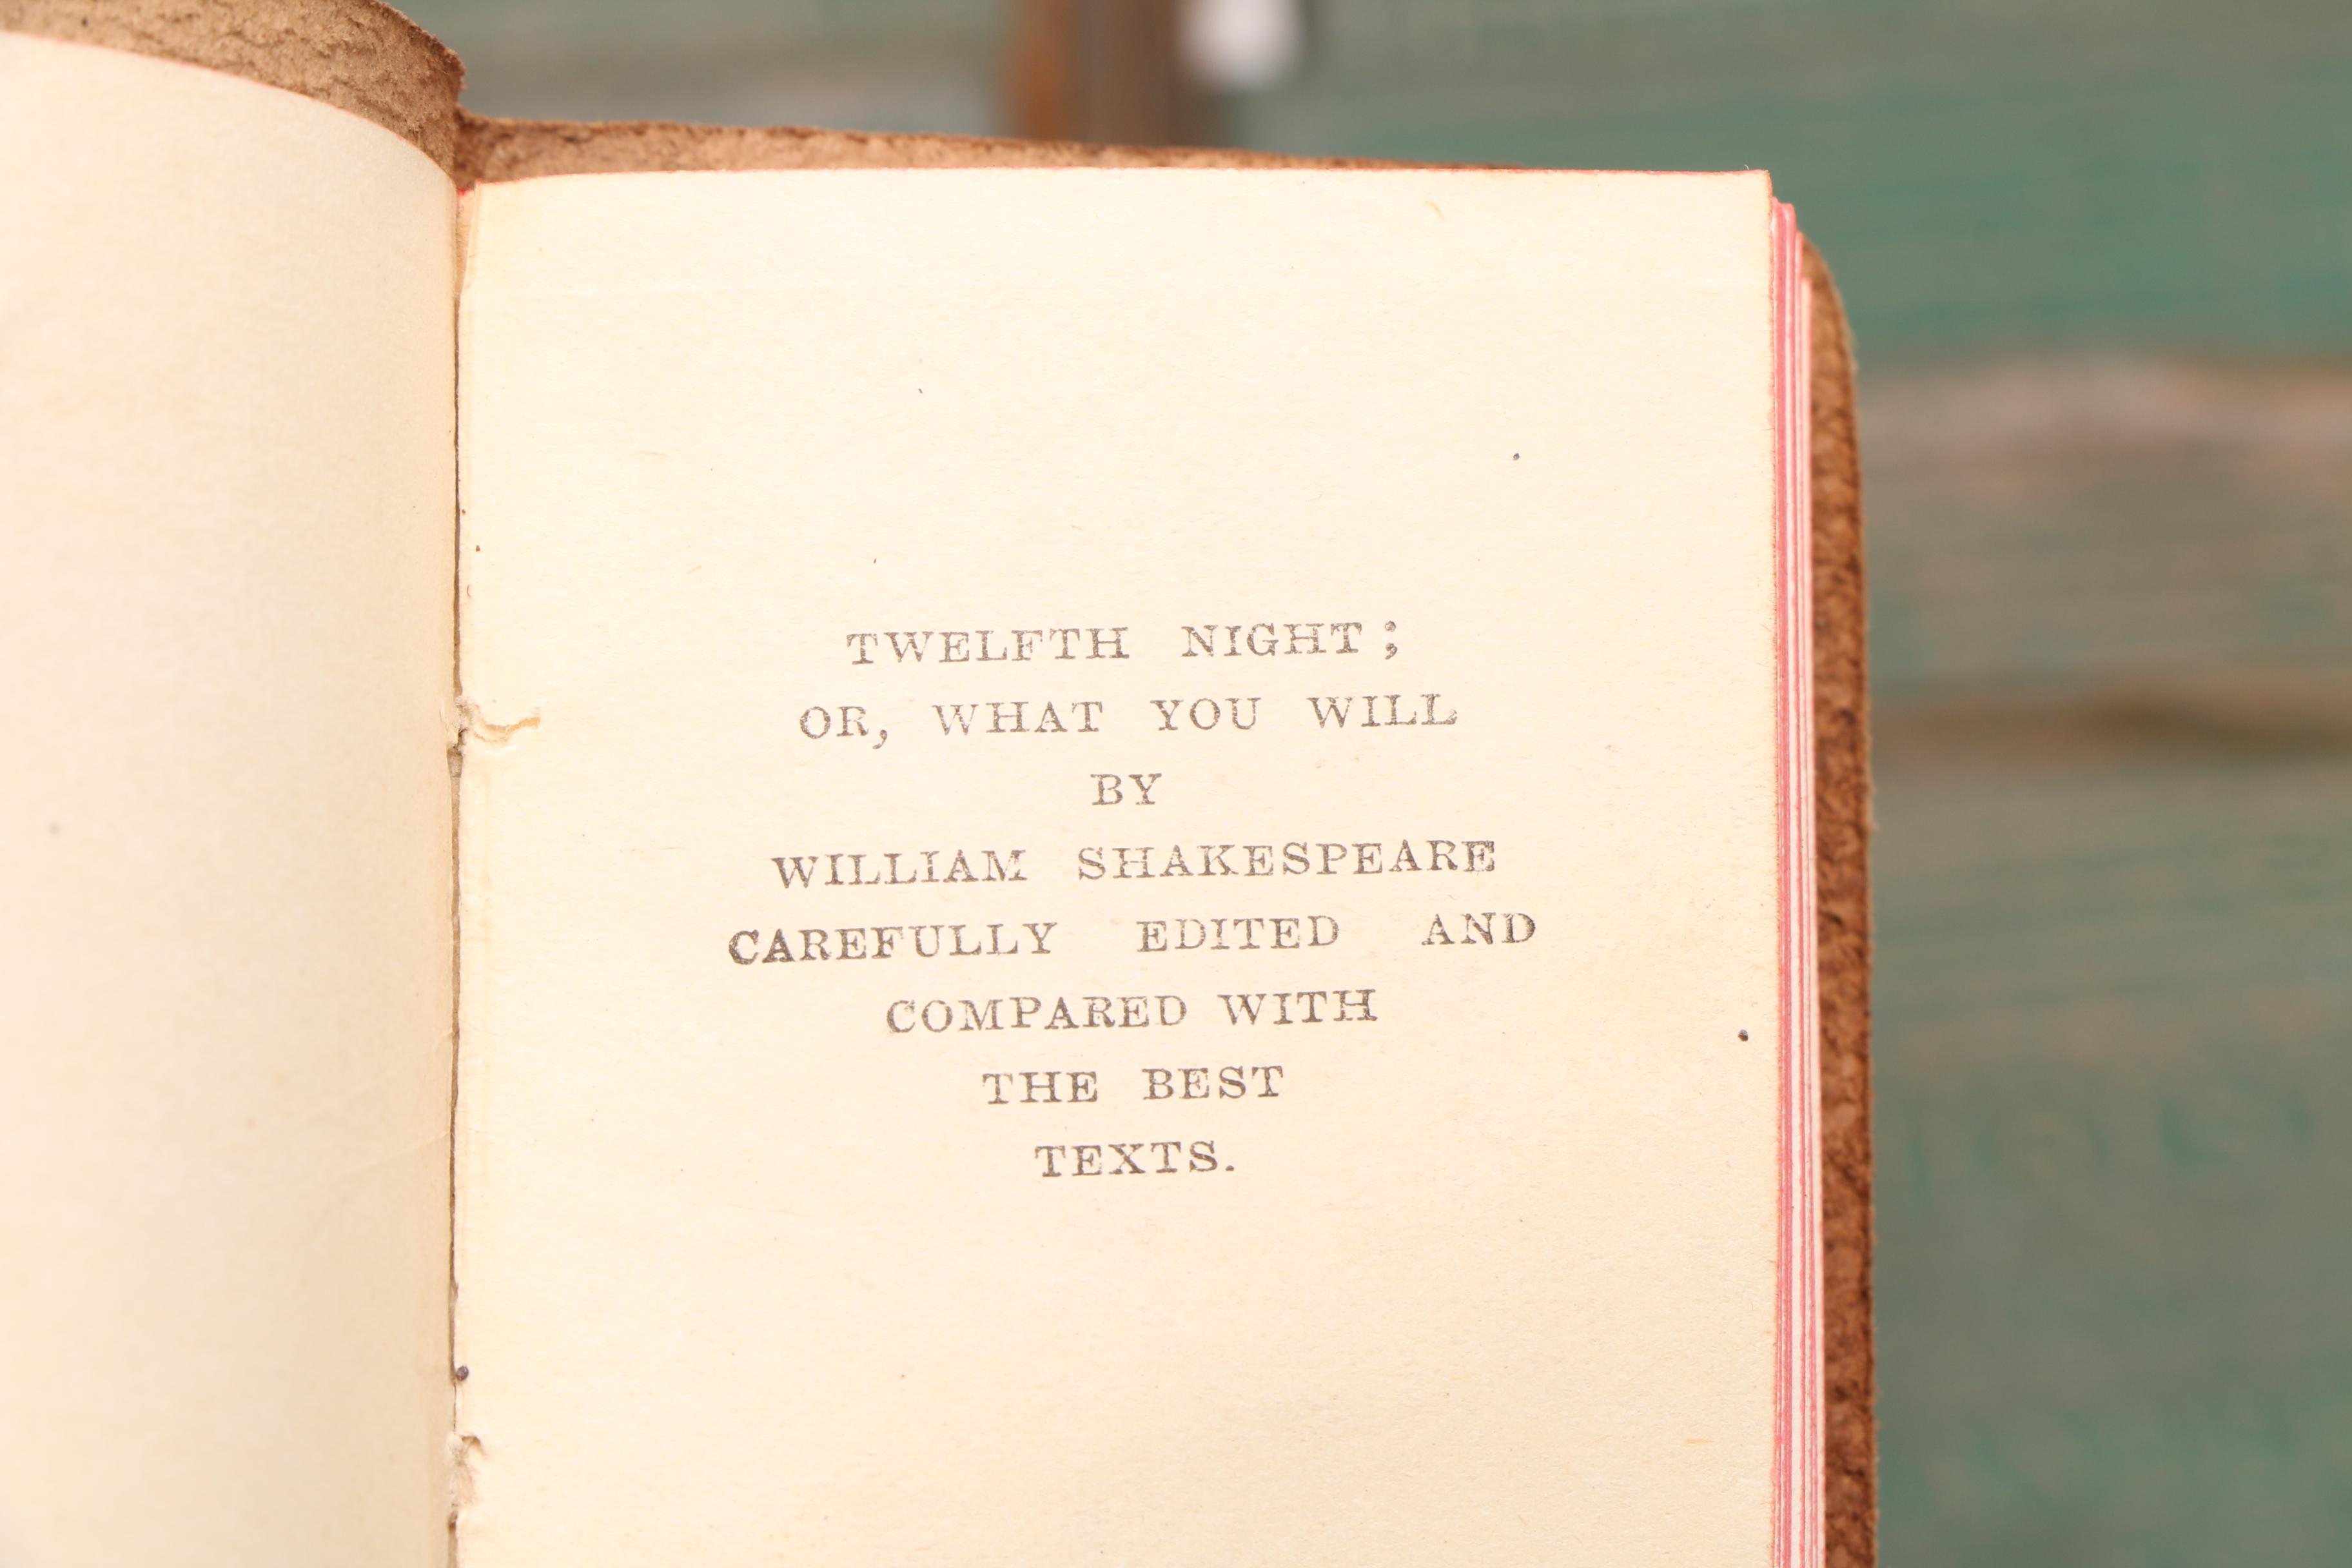 TWELFTH NIGHT;
OR, WHAT YOU WILL
BY
WILLIAM SHAKESPEARE
CAREFULLY EDITED AND
COMPARED WITH
THE BEST
TEXTS.